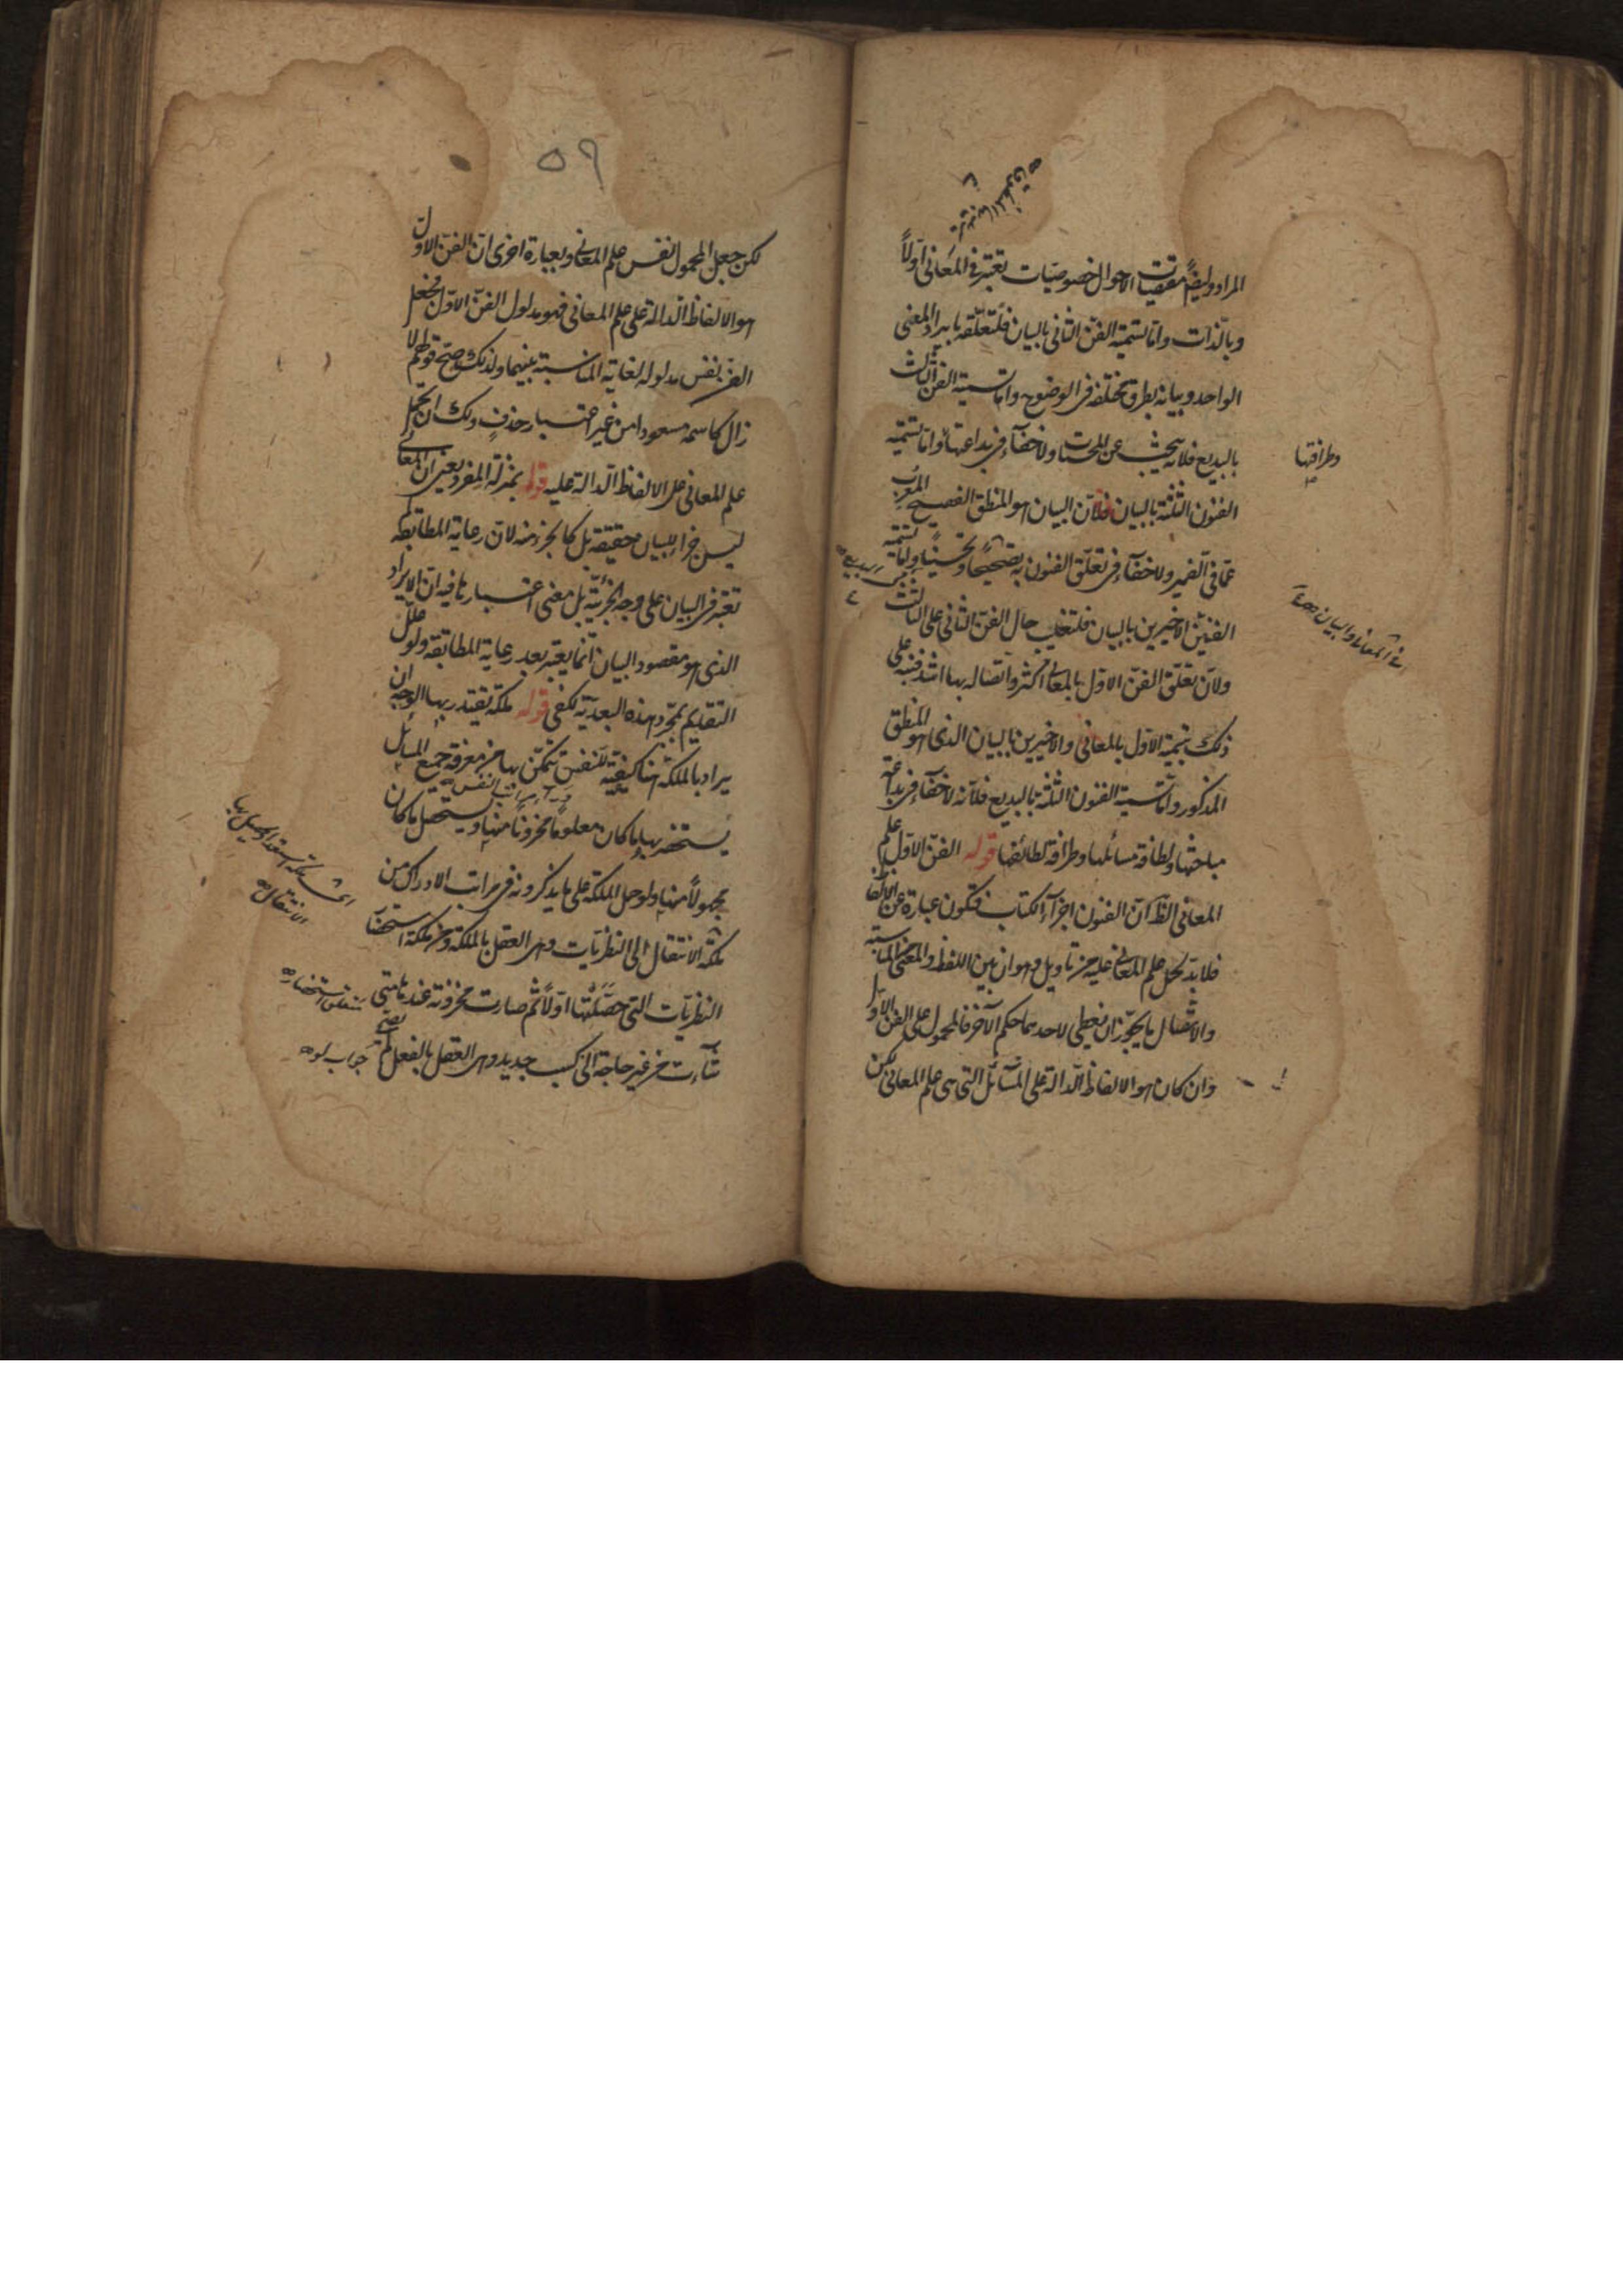 المراد وايضًا مقتضيات الاحوال خصوصيات تعتبر في المعاني اولًا
وبالذات واما تسمية الفن الثاني بالبيان فلتعلقه بايراد المعنى
الواحد وبيانه بطرق مختلفة في الوضوح واما تسمية الفن الثالث
بالبديع فلانه يبحث عن المحسنات ولا خفاء في بداعتها واما تسمية
وطرافتها
الفنون الثلثة بالبيان فلان البيان هو المنطق الفصيح المعرب
عما في الضمير ولا خفاء في تعلق الفنون به تصحيحًا وتحسينًا واما تسمية
الفنين الاخيرين بالبيان فلتغليب حال الفن الثاني على الثالث
ولان تعلق الفن الاول بالمعاني اكثر واتصاله بها اشد فنبه على
ذلك بتسمية الاول بالمعاني والاخيرين بالبيان الذي هو المنطق
المذكور واما تسمية الفنون الثلثة بالبديع فلانه لا خفاء في بداعة
مباحثها ولطافة مسائلها وطرافة لطائفها قوله الفن الاول علم
المعاني الظ ان الفنون اجزاء الكتاب فتكون عبارة عن الالفاظ
فلابد لحمل علم المعاني عليه من تاويل وهو ان بين اللفظ والمعنى من المناسبة
والاتصال ما يجوز ان يعطى لاحدهما حكم الآخر فالمحمول على الفن الاول
وان كان هو الالفاظ الدالة على المسائل التي هي علم المعاني لكن
٥٩
لكن جعل المحمول نفس علم المعاني وبعبارة اخرى ان الفن الاول
هو الالفاظ الدالة على علم المعاني فهو مدلول الفن الاول فجعل
الفن نفس مدلوله لغاية المناسبة بينهما ولذلك صح قولهم لا
زال كاسمه مسعودا من غير اعتبار حذف ولك ان تحمل
علم المعاني على الالفاظ الدالة عليه قوله بمنزلة المفرد يعني ان المعاني
ليس جزا للبيان حقيقة بل كالجزء منه لان رعاية المطابقة
تعتبر في البيان على وجه الجزئية بل معنى اعتبارها فيه ان الايراد
الذي هو مقصود البيان انما يعتبر بعد رعاية المطابقة ولو علل
التقديم بمجرد هذه البعدية لكفى قوله ملكة يقتدر بها الوجه ان
يراد بالملكة هنا كيفية للنفس تتمكن بها من معرفة جميع المسائل
يستحضر بها ما كان معلومًا مخزونًا منها ويستحصل ما كان
مجهولًا منها ولو حمل الملكة على ما يذكرونه في مراتب الادراك من
ملكة الانتقال الى النظريات وهي العقل بالملكة ومن ملكة استحضار
الانتقال
النظريات التي حصلتها اولًا ثم صارت مخزونة عنده متى
شاءت من غير حاجة الى كسب جديد وهي العقل بالفعل لم يصح
جواب لو